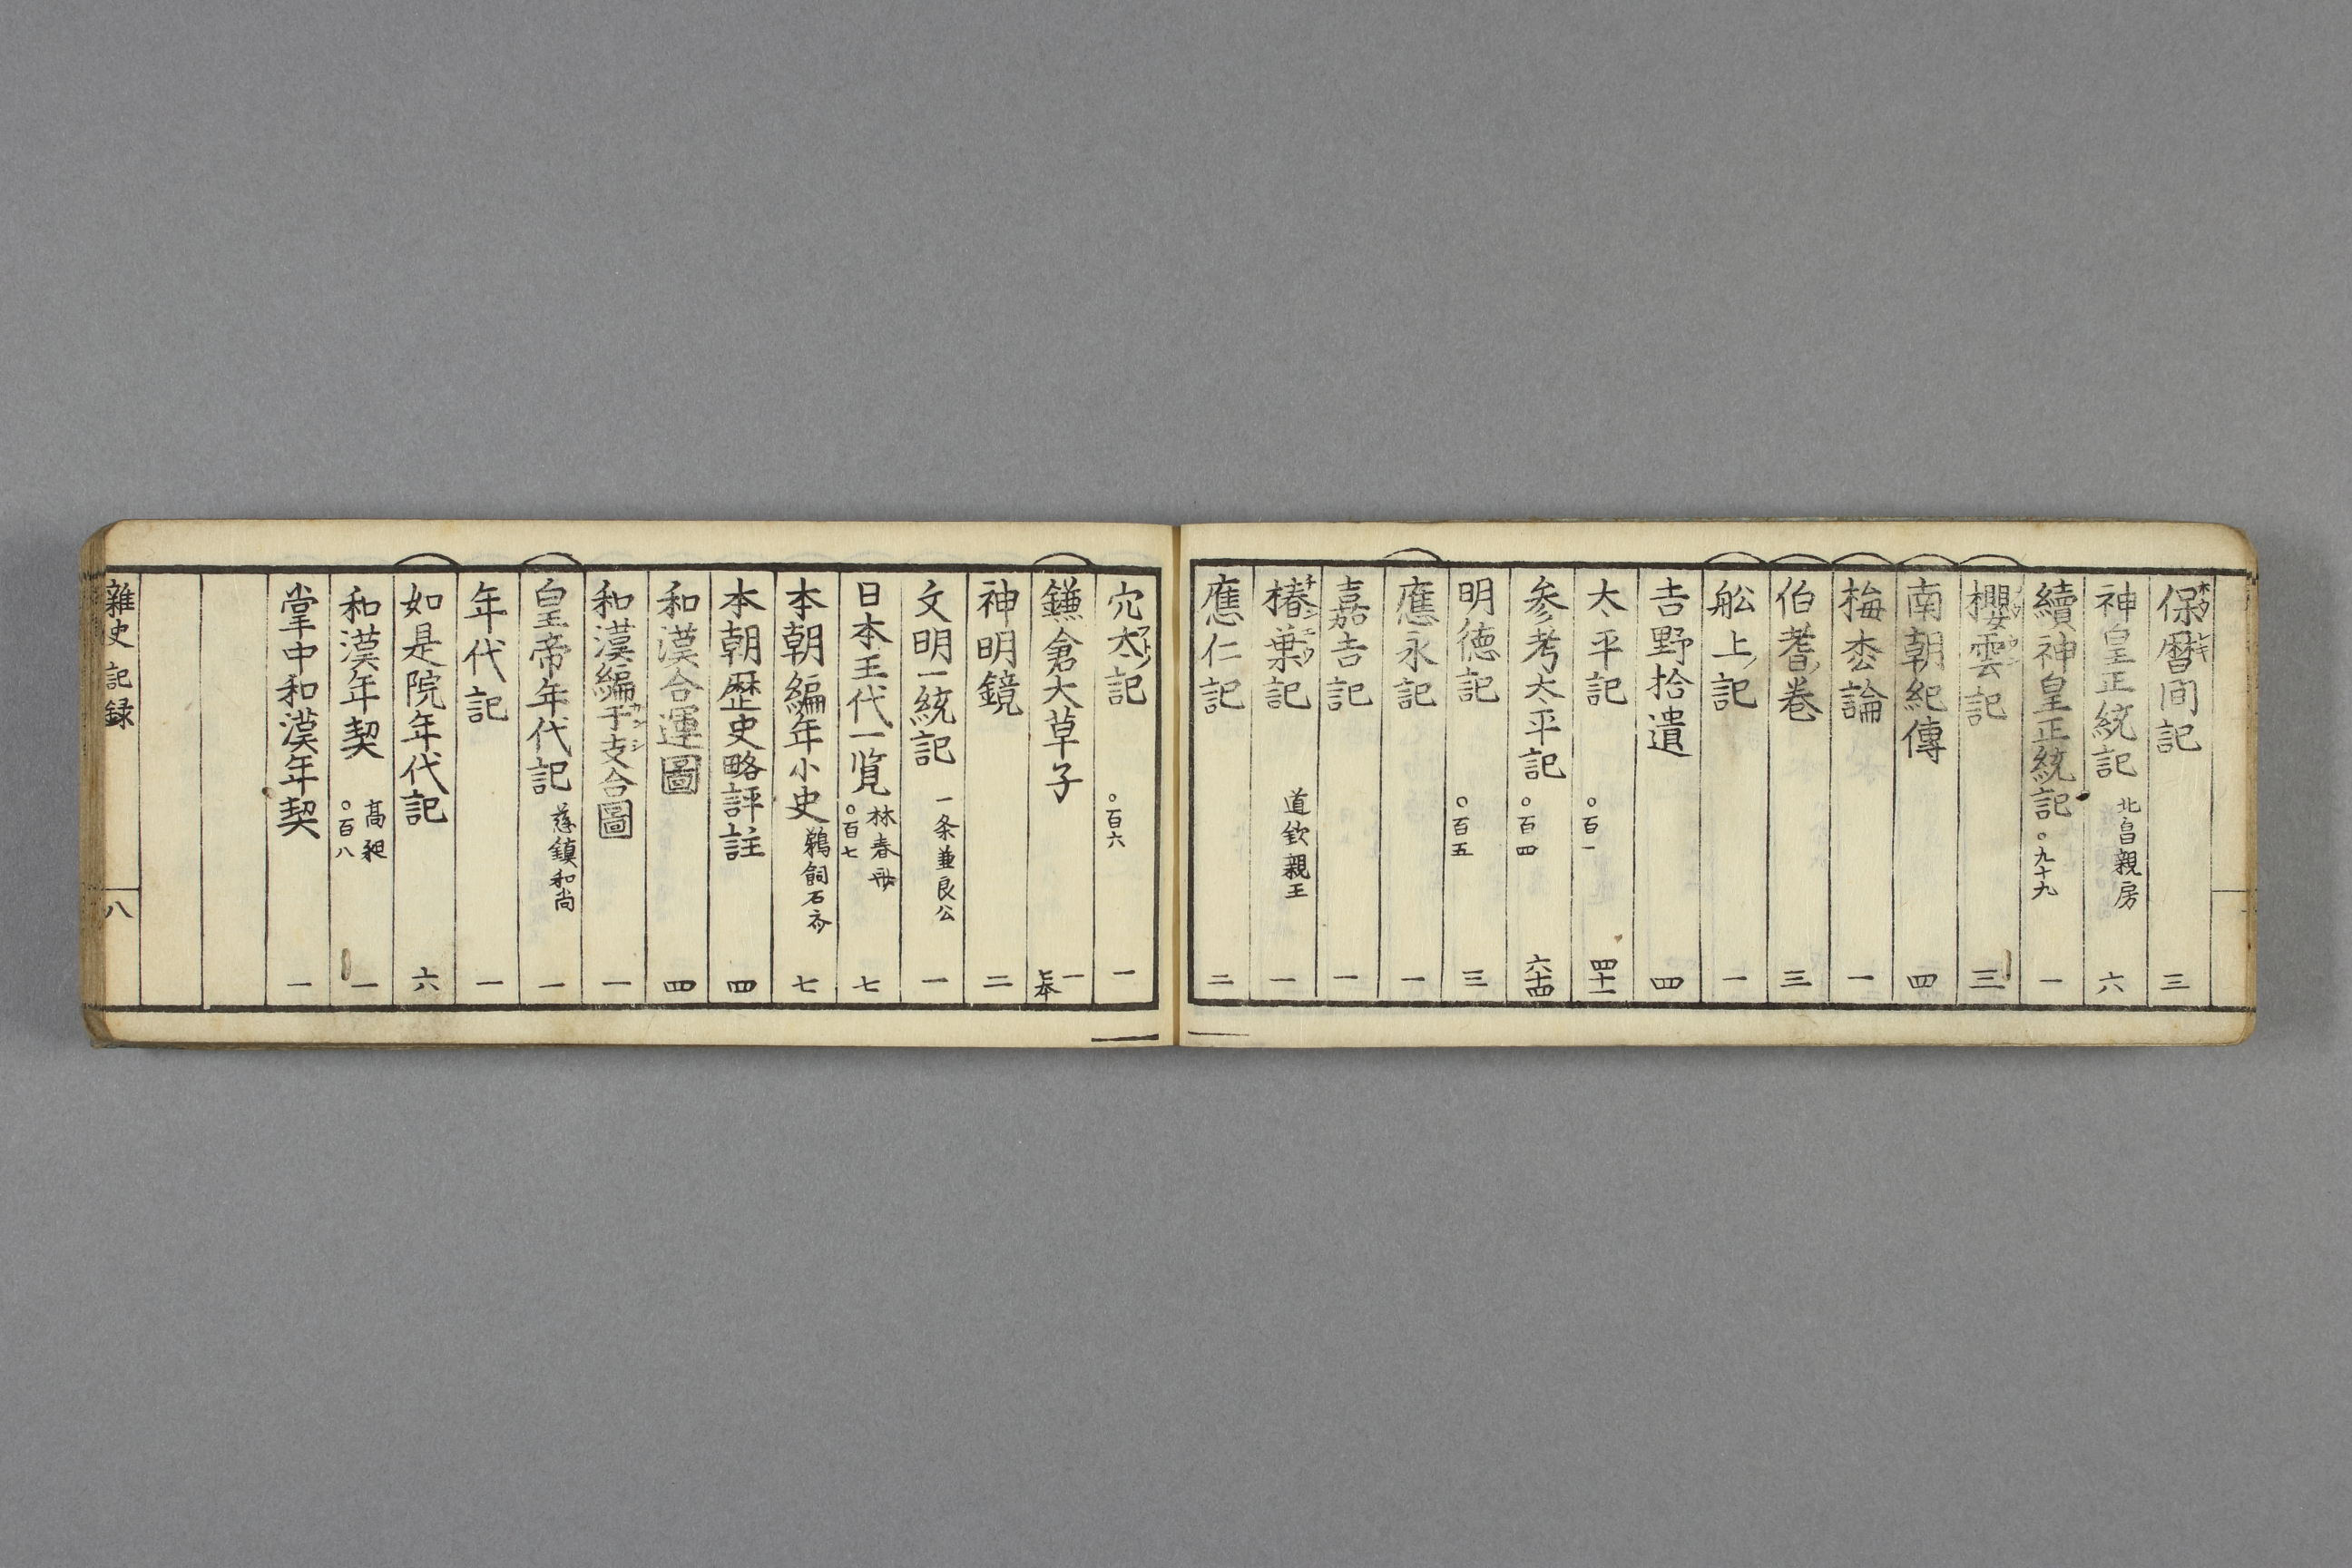 保暦间記 三
神皇正統記 北畠親房 六
續神皇正統記 ○九十九 一
櫻雲記 三
南朝紀傳 四
梅枩論 一
伯耆巻 三
舩上記 一
吉野拾遺 四
太平記 ○百一 四十一
参考太平記 ○百四 六十四
明徳記 ○百五 三
應永記 一
嘉吉記 一
椿葉記 道欽親王 一
應仁記 二
穴太記 ○百六 一
鎌倉大草子 一 上本
神明鏡 二
文明一統記 一条兼良公 一
日本王代一覧 林春 ○百七 七
本朝編年小史 鵜飼石斎 七
本朝歴史略評註 四
和漢合運圖 四
和漢編干支合圖 一
皇帝年代記 慈鎮和尚 一
年代記 一
如是院年代記 六
和漢年契 高昶 ○百八 一
掌中和漢年契 一
雜史 記録 八